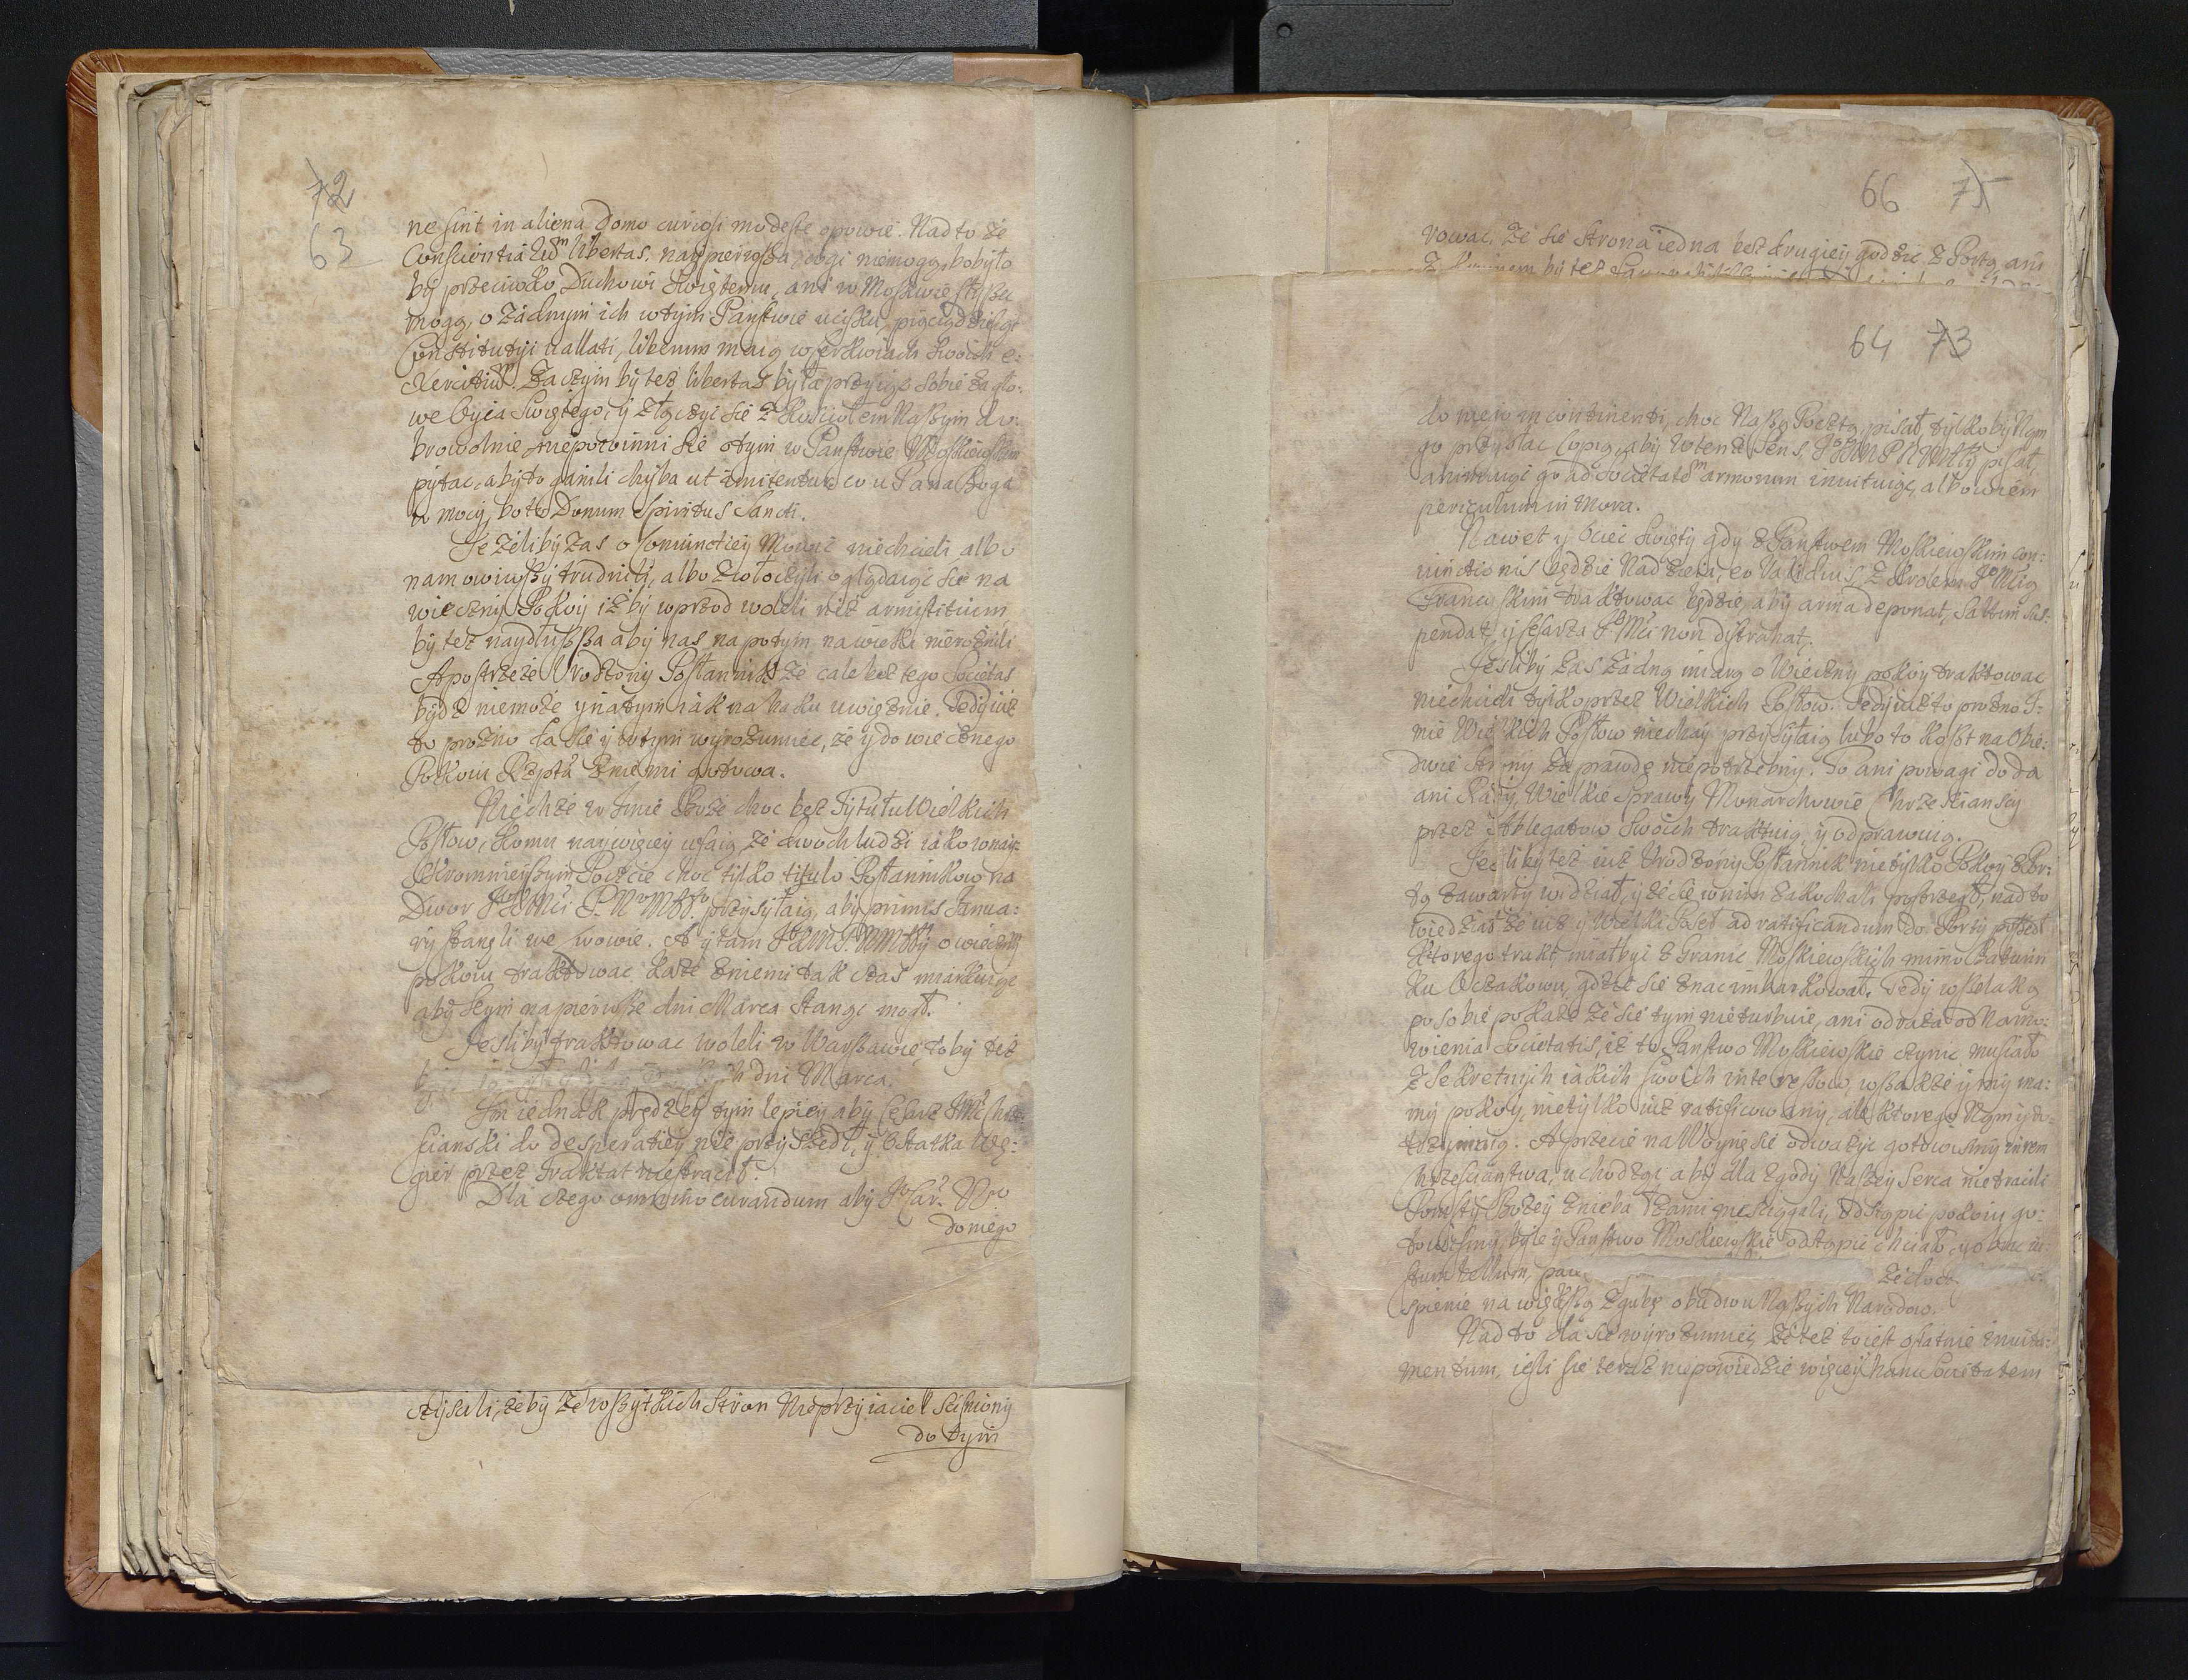 72
63
ne sint in aliena Domo curiosi modeste opowie. Nad to że
Conscientiarum libertas, naypierwsza, cogi niemogą, bobyło
by przeciwko Duchowi Swiętemu, ani w Moskwie słyszeć
mogą, o żadnym ich wtym Państwie ucisku, pięciądziesiąt
Constitutyi nallati, liberum maią w Cerkwiach swoich e:
xercitium. Zaczym by też libertas była przyiąć sobie za gło:
wę Oyca Swiętego, y złączyć się z Kosciołem Naszym do:
browolnie niepowinni się otym w Państwie Moskiewskim
pytac, aby to ganili chyba ut imitentur co u Pana Boga
w mocy, bo to Donum Spiritus Sancti.
Jeżeliby zas o Coniunctiey Mowić niechcieli albo
namowiwszy trudnili, albo zwłoczyli oglądaiąc się na
wieczny Pokoy iżby wprzod woleli niż armistitium
by też naydłuższa aby nas na potym na wieki nierożnili
A postrzeże Urodzony Posłannik że cale bez tego Societas
bydź niemoże y na tym iak na haku uwięźnie. Tedy iuż
to prożno da się y wtym wyrozumieć, że y do wiecznego
Pokoiu Rzptа z niemi gotowa.
Niechże w Imie Boże choc bez Tytułu Wielkich
Posłow, komu naywięcey ufaią ze dwoch ludzi iako wnay:
skromnieyszym Poczcie choc tylko titulo Posłannikow na
Dwor JKMci P. N. M. przysyłaią, aby primis Janua:
rij stanęli we Lwowie. A y tam JKM PNMłky o wieczny
pokoiu traktowac każe z niemi tak czas miarkuiąc
aby Seym na pierwsze dni Marca stanąc mogł.
Jesliby traktowac woleli w Warszawie, to by też
dni Marca.
Im iednak prędzey tym lepiey aby Cesarz JMć chrze:
scianski do desperatiey nie przyszedł, y ostatka Wę:
gier przez Traktat niestracił.
Dla czego omnino curandum aby Jo Car. W
do niego
styscili, żeby ze wszytkich Stron Nieprzyiaciel scisniony
do tym
66 75
rowac, że się strona iedna bez drugiey godzić, z Portą, ani
64 73
do niego in continenti, choc Naszą Pocztą, pisał, tylko by Nam
go przysłac Copią, aby wtenże Sens, JKM PNMłky pisał,
animuiąc go ad Societatem armorum inuituiąc, albowiem
periculum in mora.
Nawet y Ociec Swięty gdy z Państwem Moskiewskim con:
iunctionis będzie Nadzieia, eo validius, z Krolem JeMcią
Francuskim traktowac będzie, aby arma deponat, saltim sus:
pendat, y Cesarza JeMci non distrahat.
Jesliby zas żadną miarą o Wieczny pokoy traktowac
niechcieli tylko przez Wielkich Posłow. Tedy iuż to prożno I:
mię Wielkich Posłow niechay przysyłaią lubo to koszt na Obie:
dwie strony zaprawdę niepotrzebny. To ani powagi doda
ani Rady, Wielkie Sprawy Monarchowie Chrzescianscy
przez Ablegatow swoich traktuią y odprawuią.
Jesliby też iuż Urodzony Posłannik nietylko Pokoy z Por:
tą zawarty widział, y że się wnim zakochali postrzegł, nad to
wiedział że iuż y Wielki Poseł ad ratificandum do Porty poszedł
ktorego trakt miał byi z Granic Moskiewskich mimo Baturin
ku Oczakowu, gdzie się znac imbarkował. Tedy wszelako
po sobie pokaże że się tym nieturbuie, ani odraża od Namo:
wienia Societatis, iż to Państwo Moskiewskie czynic musiało
z Sekretnych iakich swoich interessow, wszakże y my ma:
my pokoy, nietylko iuż ratificowany, ale ktorego Nam y do:
trzymuią. A przecie na Woynę się odważyc gotowismy zarem
Chrzescianstwa, uchodząc aby dla zgody Naszey Serca nietracili
Pomsty Bożey z nieba łzami nie sciągali, odstąpic pokoiu go:
towismy, byle y Państwo Moskiewskie odstąpic chciało, y obrać iu:
stum bellum,
spienie na większą zgubę obudwu Naszych Narodow.
Nad to da się wyrozumiec, że też to iest ostatnie inuita:
mentum, iesli się teraz niepowiedzie więcey hanc Societatem